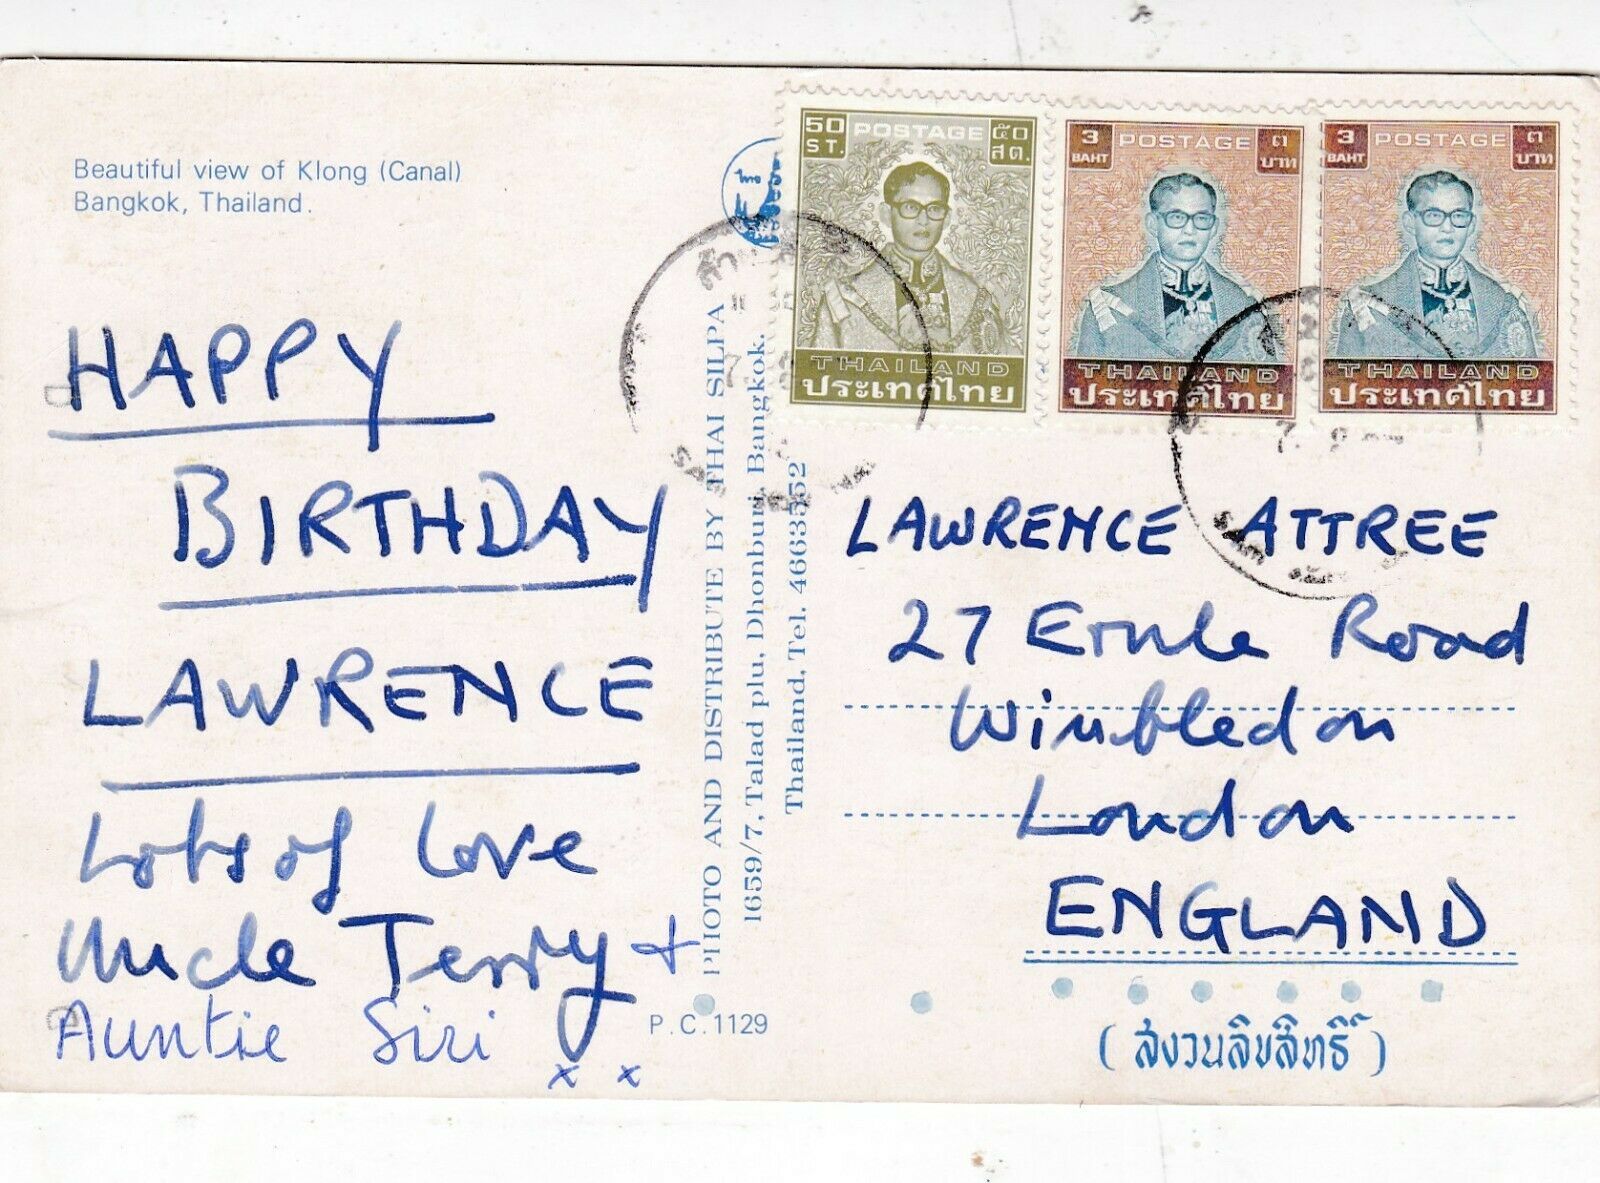 Beautiful view of Klong (Canal)
Bangkok, Thailand.
HAPPY
BIRTHDAY
LAWRENCE
Lots of love
Uncle Terry +
Auntie Siri
x x
P.C.1129
PHOTO AND DISTRIBUTE BY THAI SILPA
1659/7, Talad plu, Dhonburi, Bangkok.
Thailand, Tel. 4663552
50 POSTAGE ๕๐
ST. สต.
THAILAND
ประเทศไทย
3 POSTAGE ๓
BAHT บาท
THAILAND
ประเทศไทย
3 POSTAGE ๓
BAHT บาท
THAILAND
ประเทศไทย
LAWRENCE ATTREE
27 Ernle Road
Wimbledon
London
ENGLAND
(สงวนลิขสิทธิ์)